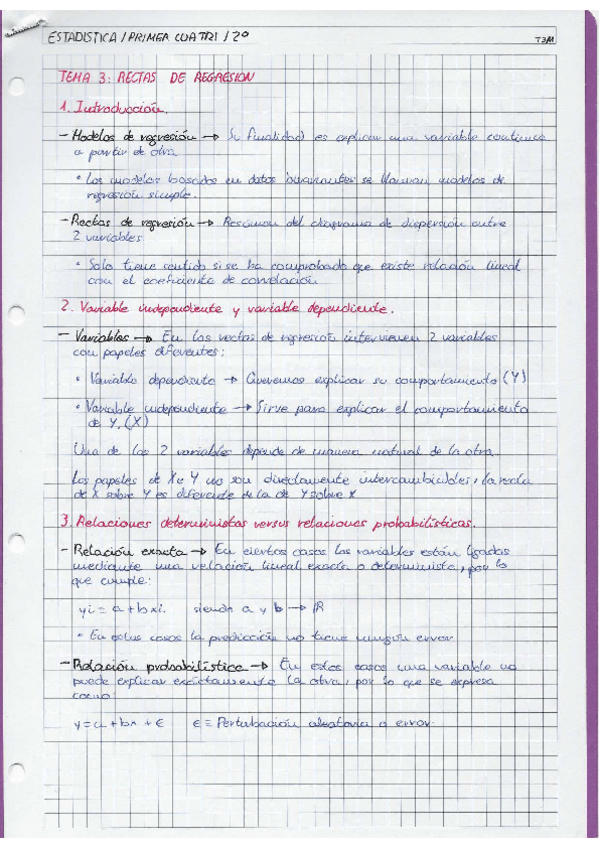 ESTADISTICA / PRIMER CUATRI / 2º
T3M
TEMA 3: RECTAS DE REGRESION
1. Introducción.
- Modelos de regresión → Su finalidad es explicar una variable continua
a partir de otra
• Los modelos basados en datos bivariantes se llaman modelos de
regresión simple.
- Rectas de regresión → Resumen del diagrama de dispersión entre
2 variables
• Solo tiene sentido si se ha comprobado que existe relación lineal
con el coeficiente de correlación
2. Variable independiente y variable dependiente.
- Variables → En las rectas de regresión intervienen 2 variables
con papeles diferentes:
• Variable dependiente → Queremos explicar su comportamiento (Y)
• Variable independiente → Sirve para explicar el comportamiento
de Y. (X)
Una de las 2 variables depende de manera natural de la otra.
Los papeles de X e Y no son directamente intercambiables, la recta
de X sobre Y es diferente de la de Y sobre X
3. Relaciones deterministas versus relaciones probabilísticas.
- Relación exacta → En ciertos casos las variables están ligadas
mediante una relación lineal exacta o determinista, por lo
que cumple:
yi = a + bxi. siendo a y b → R
• En estos casos la predicción no tiene ningún error
- Relación probabilística → En estos casos una variable no
puede explicar exactamente la otra, por lo que se expresa
como:
y = a + bx + ϵ ϵ = Perturbación aleatoria o error.